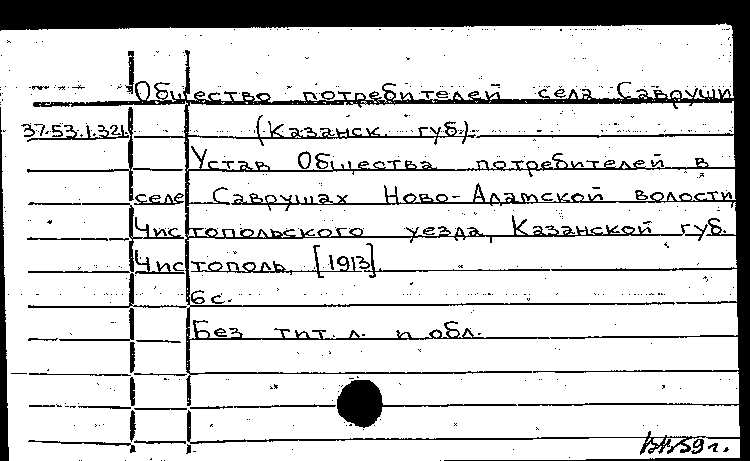 Общество потребителей села Савруши
37.53.1.321
(Казанск. губ.).
Устав Общества потребителей в
селе Саврушах Ново-Адамской волости,
Чистопольского уезда, Казанской губ.
Чистополь, [1913].
6 с.
Без тит. л. и обл.
59 г.